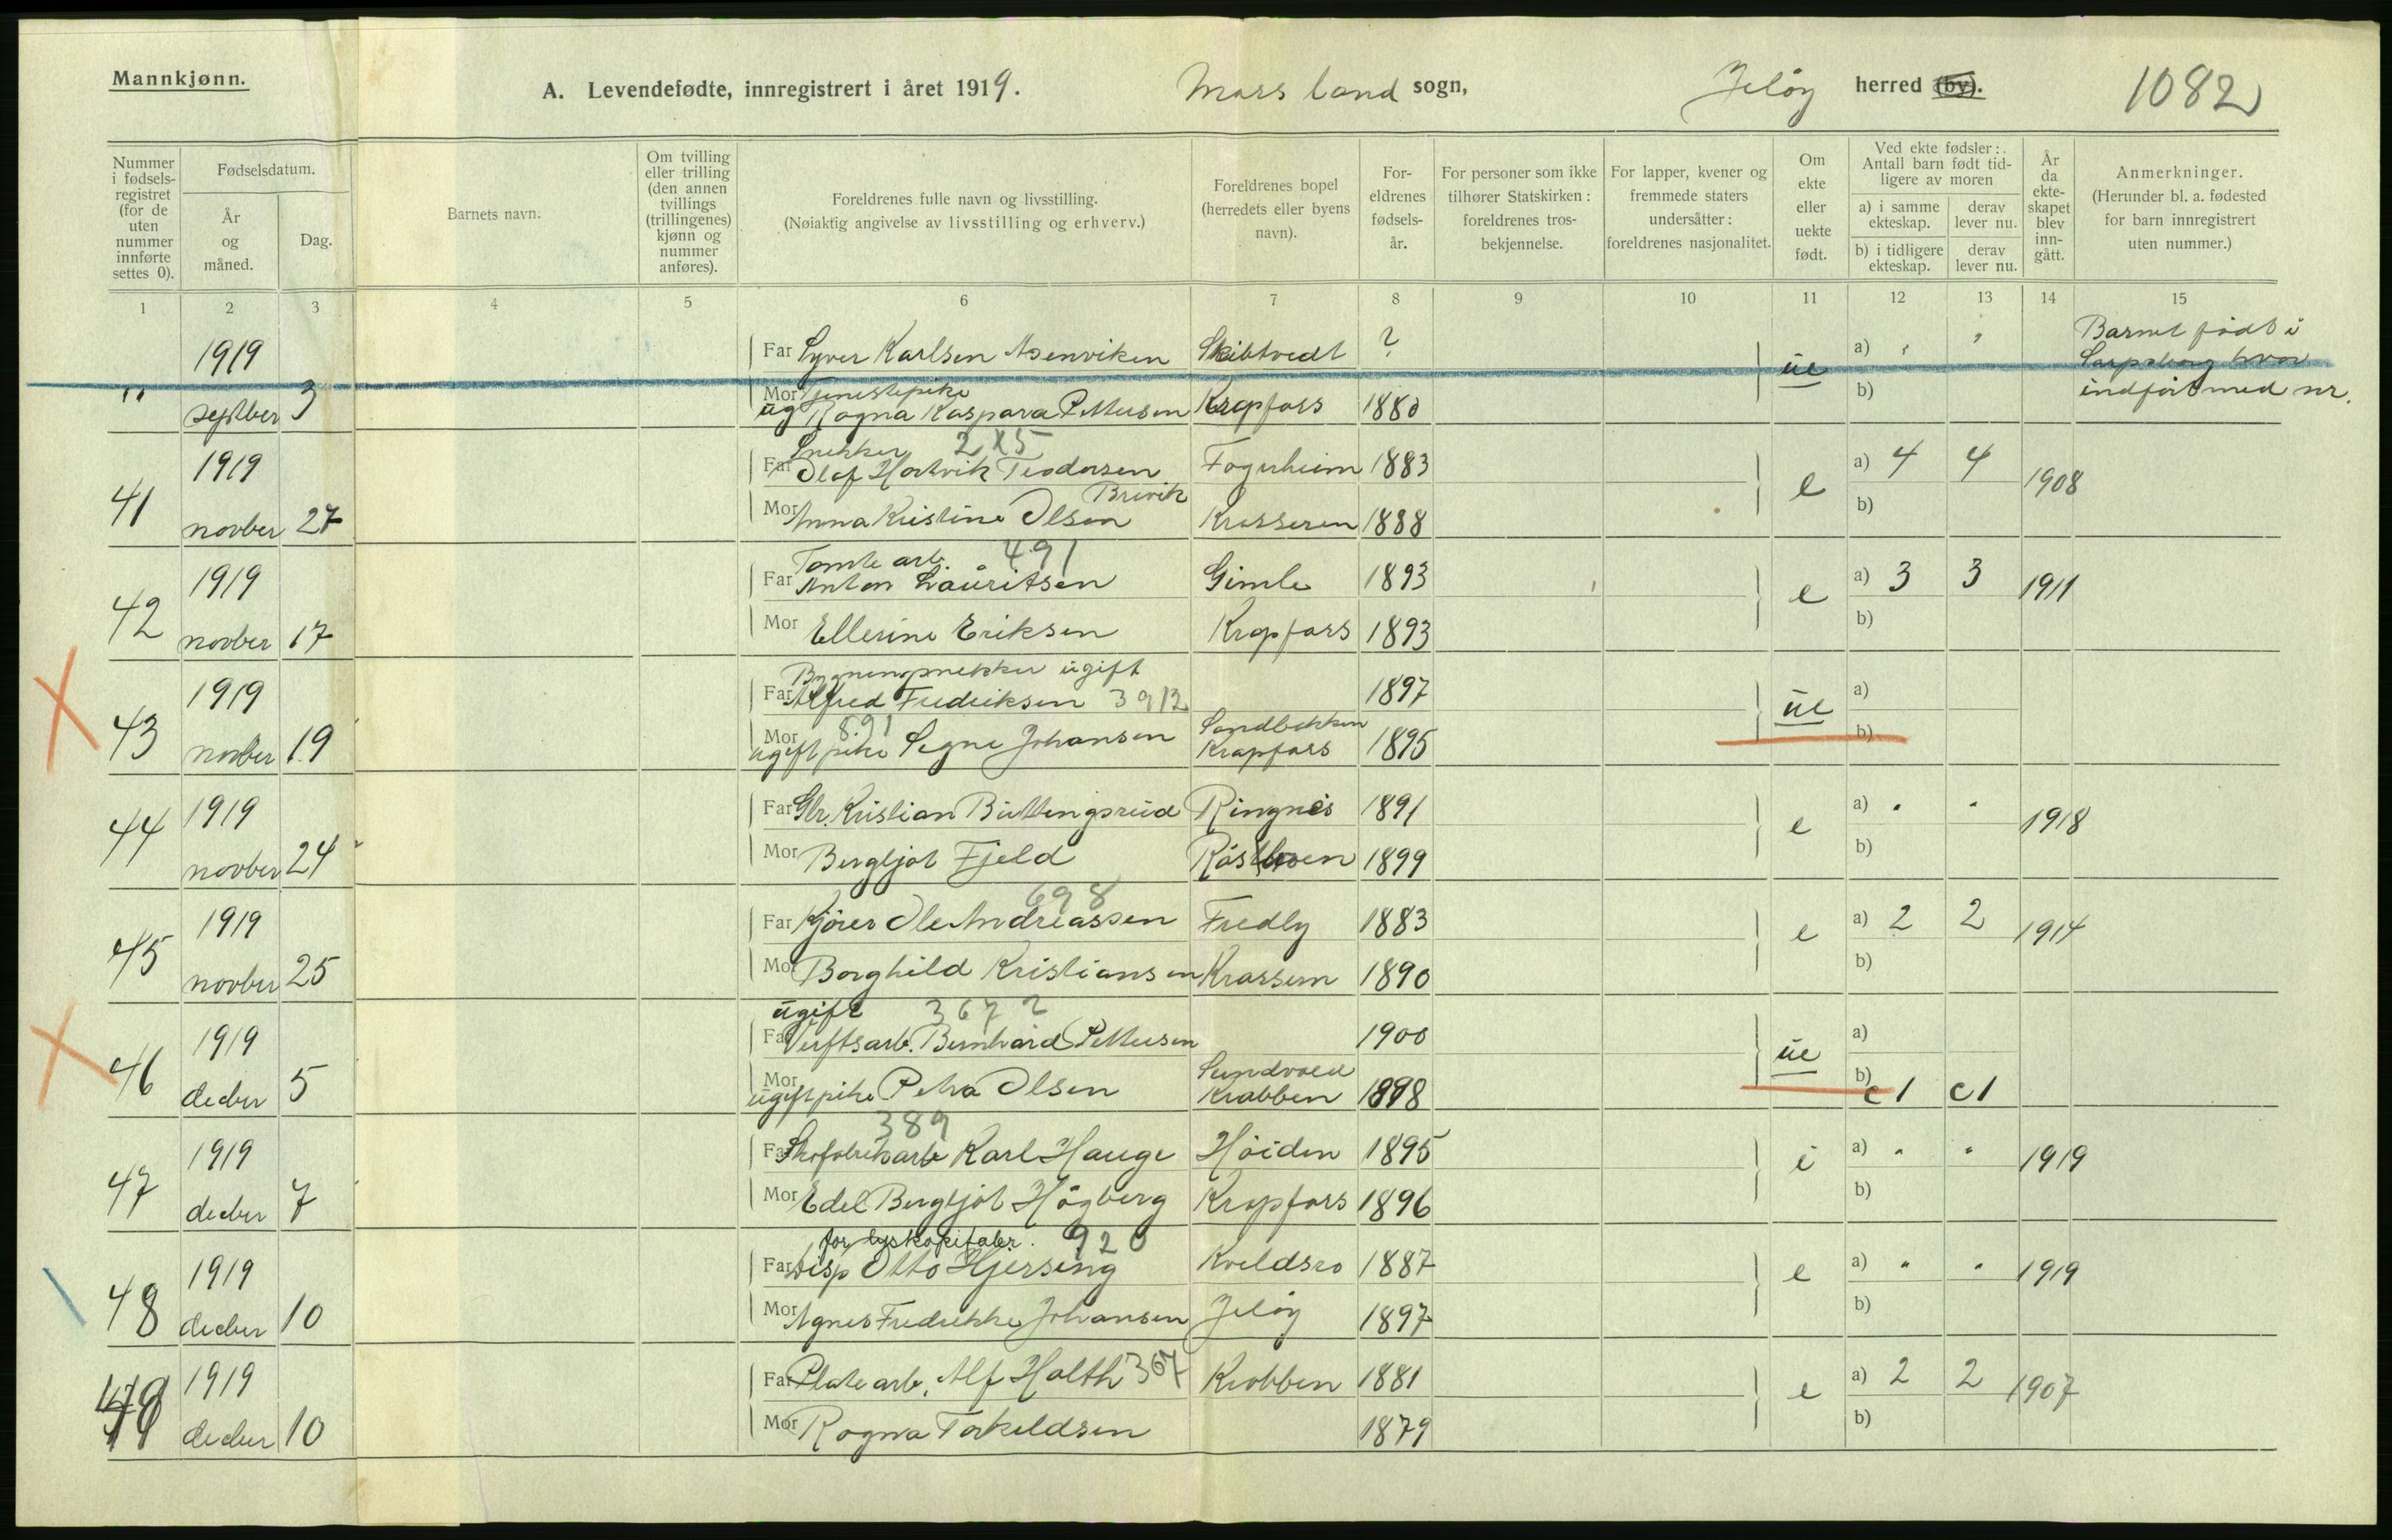 Mannkjønn.
A. Levendefødte, innregistrert i året 1919.
Moss land sogn,
Jeløy herred (by).
1082
Nummer i fødsels-registret (for de uten nummer innførte settes 0).
Fødselsdatum.
År og måned.
Dag.
Barnets navn.
Om tvilling eller trilling (den annen tvillings (trillingenes) kjønn og nummer anføres).
Foreldrenes fulle navn og livsstilling.
(Nøiaktig angivelse av livsstilling og erhverv.)
Foreldrenes bopel (herredets eller byens navn).
For-eldrenes fødsels-år.
For personer som ikke tilhører Statskirken: foreldrenes tros-bekjennelse.
For lapper, kvener og fremmede staters undersåtter: foreldrenes nasjonalitet.
Om ekte eller uekte født.
Ved ekte fødsler: Antall barn født tid-ligere av moren
a) i samme ekteskap.
derav lever nu.
b) i tidligere ekteskap.
derav lever nu.
År da ekte-skapet blev inn-gått.
Anmerkninger.
(Herunder bl. a. fødested for barn innregistrert uten nummer.)
1 2 3 4 5 6 7 8 9 10 11 12 13 14 15
1919 Far Syver Karlsen Asenviken Skibtvedt ? üe a) " " Barnet født i
Sarpsborg hvor
" septber 3 Mor Tjenestepike
ug Ragna Kaspara Pettersen Krapfoss 1880 b) indført med nr.
Snekker 2 x 5
1919 Far Olaf Hartvik Teodorsen Fagerheim 1883 e a) 4 4 1908
Brevik
41 novber 27 Mor Anna Kristine Olsen Krosseren 1888 b)
Tomte arb. 491
1919 Far Anton Lauritsen Gimle 1893 e a) 3 3 1911
42 novber 17 Mor Ellerine Eriksen Krapfoss 1893 b)
Bygningsnekker ugift
1919 Far Alfred Fredriksen 3912 1897 üe a)
891 Sandbekken
43 novber 19 Mor ugift pike Signe Johansen Krapfoss 1895 b)
1919 Far Gbr. Kristian Büttingsrud Ringnes 1891 e a) " " 1918
44 novber 24 Mor Bergljot Fjeld 1899 b)
698
1919 Far Kjører Ole Andreassen Fredly 1883 e a) 2 2 1914
45 novber 25 Mor Borghild Kristiansen Krosseren 1890 b)
ugift 3672
1919 Far Verftsarb. Bernhard Pettersen 1900 üe a)
Sundvold
46 decber 5 Mor ugift pike Petra Olsen Krabben 1898 b) c1 c1
389
1919 Far Skofabrikarb Karl Hauge Høiden 1895 e a) " " 1919
47 decber 7 Mor Edel Bergljot Högberg Krapfoss 1896 b)
920
1919 Far Disp Otto Gjersing Kveldsro 1887 e a) " " 1919
48 decber 10 Mor Agnes Fredrikke Johansen Jeløy 1897 b)
1919 Far Plate arb. Alf Holth 367 Krobben 1881 e a) 2 2 1907
49 decber 10 Mor Ragna Torkeldsen 1879 b)